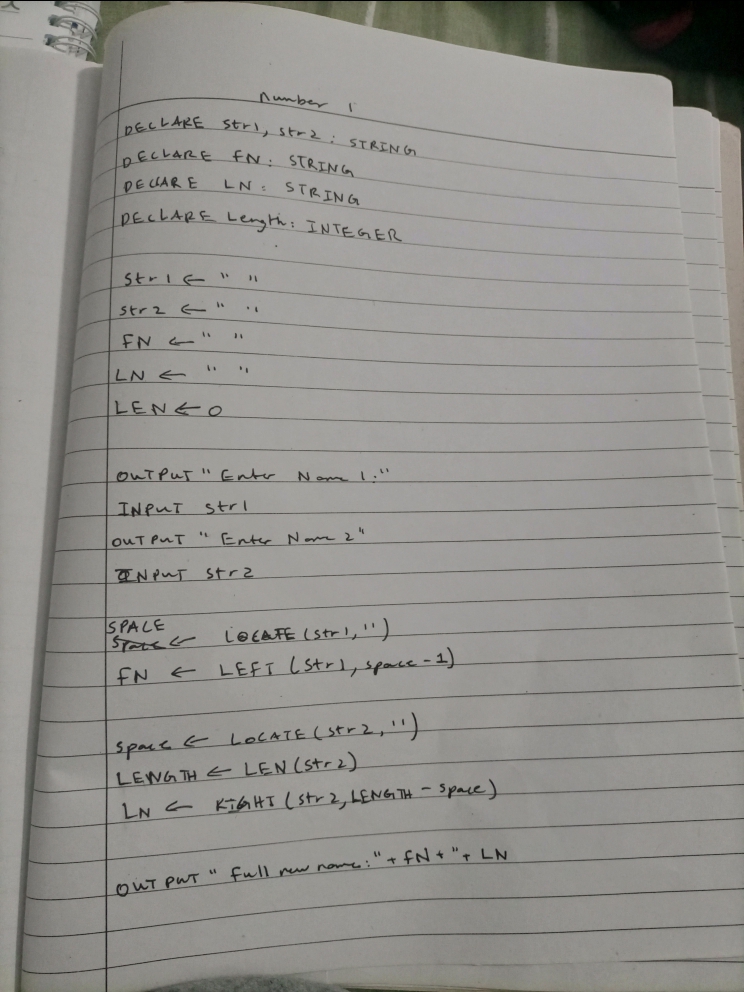 Number 1
DECLARE str1, str2 : STRING
DECLARE FN : STRING
DECLARE LN : STRING
DECLARE Length : INTEGER
Str1 ← " "
Str2 ← " "
FN ← " "
LN ← " "
LEN ← 0
OUTPUT "Enter Name 1:"
INPUT str1
OUTPUT "Enter Name 2"
INPUT str2
SPACE
Space ← LOCATE (str1, '')
FN ← LEFT (str1, space - 1)
Space ← LOCATE (str2, '')
LENGTH ← LEN (str2)
LN ← RIGHT (str2, LENGTH - space)
OUTPUT "full new name:" + FN + " + LN